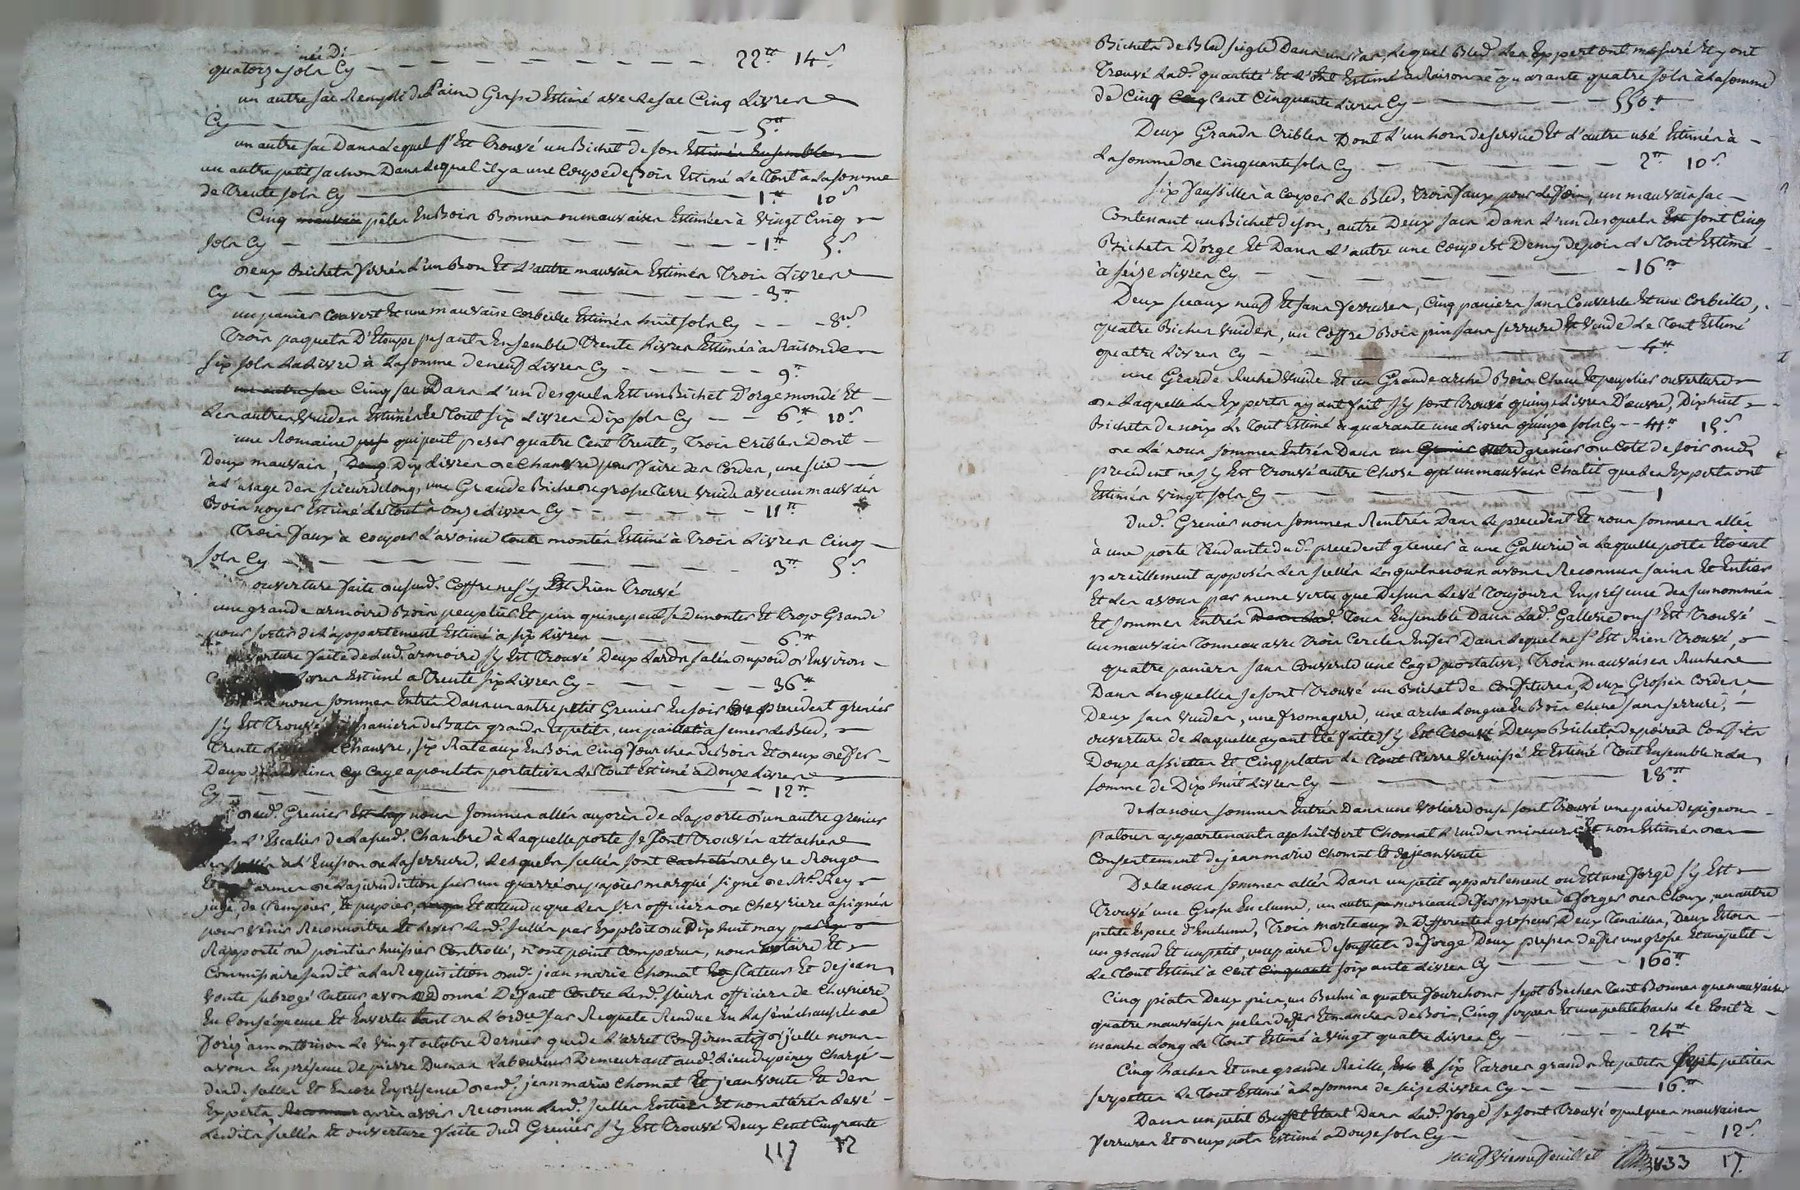 quatorze sols Cy 22# 14s
un autre sac Remply de Laine Grasse Estimé avec le sac Cinq Livres
Cy 5#
un autre sac Dans Lequel s'Est Trouvé un Bichet de son Estimés Ensemble
un autre petit sachon Dans Lequel il y a une Coupe de pois Estimé Le Tout a La somme
de Trente sols Cy 1# 10s
Cinq mauvais pèles En Bois Bonnes ou mauvaises Estimées à vingt Cinq
sols Cy 1# 5s
Deux Bichets ferrés L'un Bon Et L'autre mauvais Estimés Trois Livres
Cy 3#
un panier Couvert Et une mauvaise Corbeille Estimés huit sols Cy 8s
Trois paquets D'Etoupe pesants Ensemble Trente Livres Estimés à Raison de
six sols La Livre à La somme de neuf Livres Cy 9#
un autre sac Cinq sac Dans L'un desquels Est un Bichet D'orge mondé Et
Les autres vuides Estimés Le Tout six Livres Dix sols Cy 6# 10s
une Romaine qui peut peser quatre Cent Trente, Trois Cribles Dont
Deux mauvais, Dix Livres de Chanvre pour faire des Cordes, une scie
à L'usage des scieurs de long, une Grande Biche de grosse Terre vuide avec un mauvais
Bois noyer Estimé Le Tout à onze Livres Cy 11#
Trois faux à Couper L'avoine toute montée Estimé à Trois Livres Cinq
sols Cy 3# 5s
ouverture faite dud. Coffre ne s'y Est Rien Trouvé
une grande armoire Bois peuplier Et pin qui ne peut se demonter Et trop Grande
pour sortir de L'appartement Estimé à six Livres 6#
ouverture faite de lad. armoire s'y Est Trouvé Deux Lards salés du poid d'Environ
Estimé a Trente six Livres Cy 36#
nous sommes Entrés Dans un autre petit Grenier En soir du precedent grenier
s'y Est Trouvé paniers de Bats grands Et petits, un paillat à semer Le Bled,
Trente Livres de Chanvre, six Rateaux En Bois Cinq fourches de Bois Et deux de fer
Deux mauvaises Cages a poulets portatives Le Tout Estimé a Douze Livres
Cy 12#
dud. Grenier nous sommes allés auprès de La porte d'un autre grenier
L'Escalier de La susd. Chambre à Laquelle porte se sont Trouvés attachés
Les scellés à L'huisson de La serrure, Lesquels scellés sont de Cyre Rouge
armes de La jurisdiction sur un quarré de papier marqué signé de Mr Rey
juge, de Et attendu que Les srs officiers de Chevriere assignés
pour venir Reconnoitre Et Lever Led. scellés par Exploit du Dix huit may
Rapporté de pointier huissier Controllé, n'ont point Comparus, nous notaire Et
Commissaire susdit a La Requisition dud. jean marie Chomat tuteur Et de jean
voute subrogé tuteur avons Donné Défaut Contre Lesd. sieurs officiers de Chevriere
En Conséquence Et En vertu tant de L'ordre sur Requete Rendue En La sénéchaussée de
forez à montbrison Le vingt octobre Dernier que de L'arret Confirmatif d'jcelle nous
avons En présence de pierre Dumas Laboureur Demeurant aud. Lieu Chargé
desd. scellés Et Encore En présence dud. jean marie Chomat Et jean voute Et des
Experts, après avoir Reconnu Lesd. scellés Entiers Et non altérés Levé
Lesdits scellés Et ouverture faite dud Grenier s'y Est Trouvé Deux Cent Cinquante
117 12
Bichets de Bled seigle Dans un tas, Lequel Bled Les Experts ont mesuré Et y ont
Trouvé Lad. quantité Et L'ont Estimé a Raison de quarante quatre sols à La somme
de Cinq Cent Cinquante Livres Cy 550#
Deux Grands Cribles Dont L'un hors de service Et L'autre usé Estimés à
La somme de Cinquante sols Cy 2# 10s
six faussilles à Couper Le Bled, Trois faux pour Le foin, un mauvais sac
Contenant un Bichet de son, autre Deux sacs Dans L'un desquels sont Cinq
Bichets D'orge Et Dans L'autre une Coupe Et Demy de pois Le Tout Estimé
à seize Livres Cy 16#
Deux seaux neuf Et sans ferrures, Cinq paniers sans Couvercle Et une Corbeille,
quatre Biches vuides, un Coffre Bois pin sans serrure Et vuide Le Tout Estimé
quatre Livres Cy 4#
une Grande Ruche vuide Et un Grande arche Bois Chene Et peuplier ouverture
de Laquelle Les Experts ayant fait s'y sont Trouvé quinze Livres D'œuvre, Dix huit
Bichets de noix Le Tout Estimé à quarante une Livres quinze sols Cy 41# 15s
de Là nous sommes Entrés Dans un autre grenier du Coté de soir dud.
precedent ne s'y Est Trouvé autre Chose qu'un mauvais Chalit que Les Experts ont
Estimés vingt sols Cy 1
Dud. Grenier nous sommes Rentrés Dans Le precedent Et nous sommes allés
à une porte Tendante du d. precedent grenier à une Gallerie à Laquelle porte Etoient
pareillement apposés Les scellés Lesquels nous avons Reconnus sains Et Entiers
Et Les avons par meme vertu que Dessus Levé Toujours En présence des susnommés
Et sommes Entrés Tous Ensemble Dans Lad. Gallerie ou s'Est Trouvé
un mauvais Tonneau avec Trois Cercles En fer Dans Lequel ne s'Est Rien Trouvé,
quatre paniers sans Couvercle une Cage portative, Trois mauvaises Ruches
Dans Lesquelles se sont Trouvé un Bichet de Confitures, Deux Grosses Cordes
Deux sacs vuides, une fromagere, une arche Longue Bois Chene sans serrure,
ouverture de Laquelle ayant Eté faite s'y Est Trouvé Deux Bichets de poires Confits
Douze assiettes Et Cinq plats Le Tout Terre vernissé Et Estimé Tout Ensemble a La
somme de Dix huit Livres Cy 18#
de La nous sommes Entrés Dans une voliere ou se sont Trouvé une paire de pigeons
patous appartenants a philibert Chomat L'un des mineurs Et non Estimés du
Consentement de jean marie Chomat Et de jean voute
De La nous sommes allés Dans un petit appartement ou Est une forge s'y Est
Trouvé une Grosse Enclume, un autre morceau de fer propre à forger des Cloux, un autre
petite Espece d'Enclume, Trois marteaux de Differentes grosseurs Deux Tenailles, Deux Etocs
un grand Et un petit, une paire de soufflets de forge Deux presses de fer une grosse Et une petite
Le Tout Estimé a Cent Cinquante soixante Livres Cy 160#
Cinq piats Deux pics, un Bechu à quatre fourchons sept Beches Tant Bonnes que mauvaises
quatre mauvaises peles de fer Emanchés de Bois, Cinq serpes Et une petite hache Le Tout à
manche Long Le Tout Estimé à vingt quatre Livres Cy 24#
Cinq haches Et une grande Reille, six Tarores grands Et petits sept petites
serpettes Le Tout Estimé à La somme de seize Livres Cy 16#
Dans un petit Buffet Etant Dans Lad. forge se sont Trouvé quelques mauvaises
ferrures Et deux pots Estimé a Douze sols Cy 12s
neufvieme feuillet 833 17